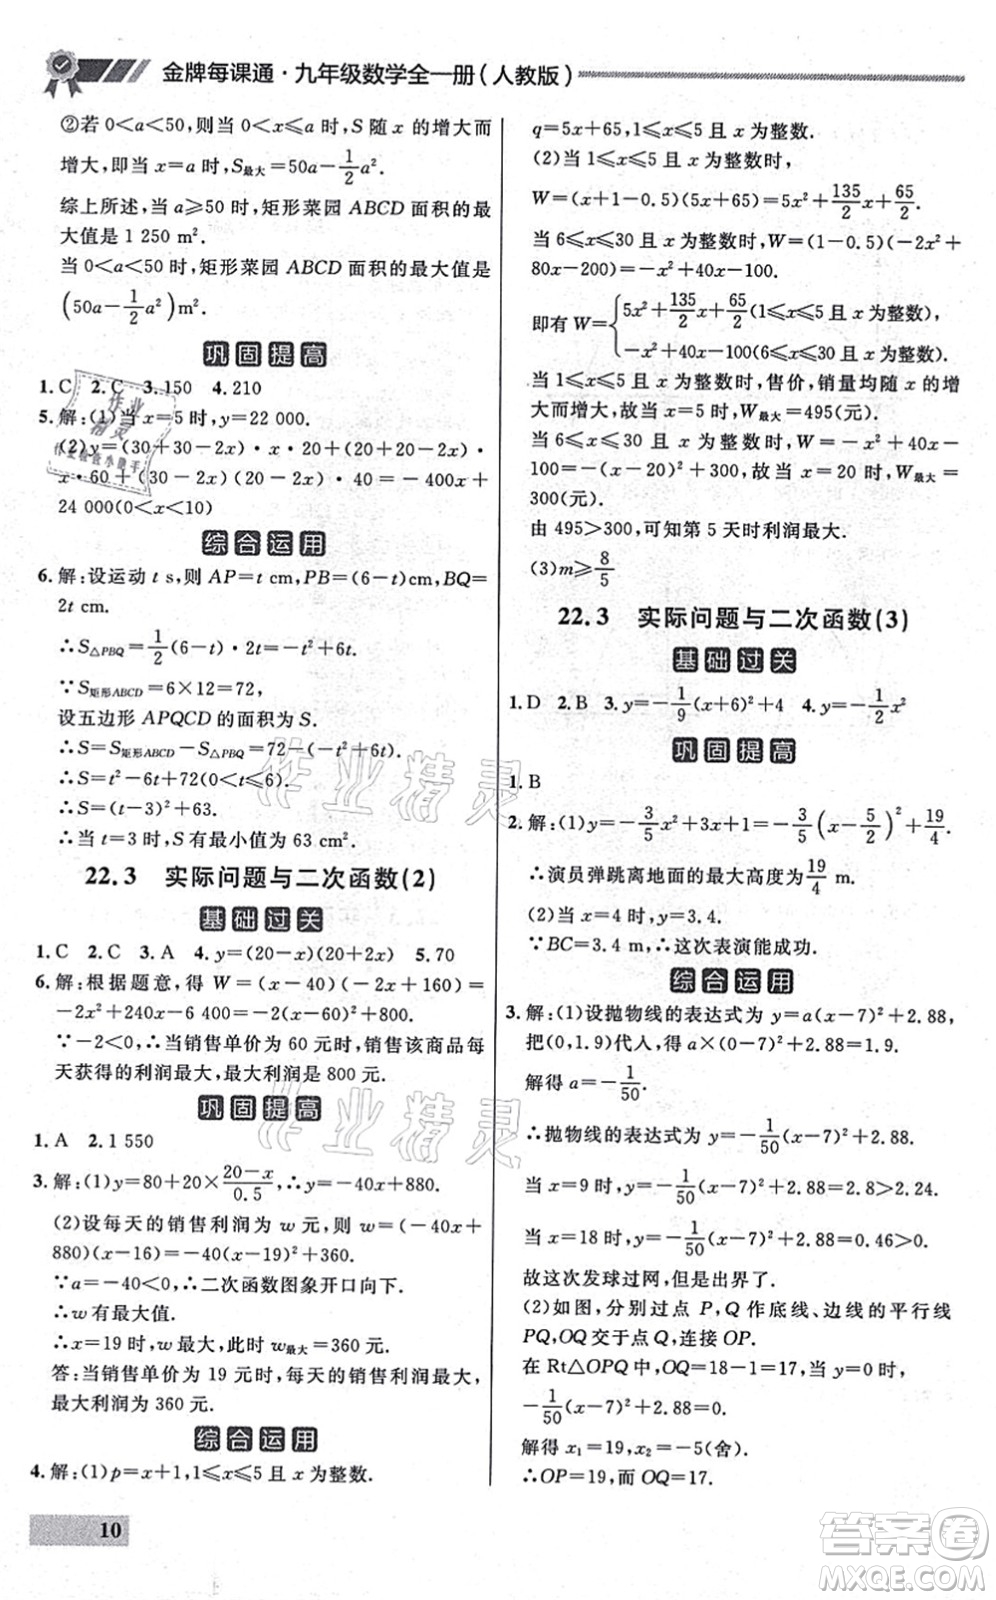 金牌每课通·九年级数学全一册(人教版)
②若 0<a<50,则当 0<x≤a 时,S 随 x 的增大而
增大,即当 x=a 时,S最大=50a-1/2a².
综上所述,当 a≥50 时,矩形菜园 ABCD 面积的最
大值是 1 250 m².
当 0<a<50 时,矩形菜园 ABCD 面积的最大值是
(50a-1/2a²)m².
巩固提高
1. C 2. C 3. 150 4. 210
5. 解:(1)当 x=5 时,y=22 000.
(2)y=(30+30-2x)·x·20+(20+20-2x)·
x·60+(30-2x)(20-2x)·40=-400x+
24 000(0<x<10)
综合运用
6. 解:设运动 t s,则 AP=t cm,PB=(6-t)cm,BQ=
2t cm.
∴S△PBQ=1/2(6-t)·2t=-t²+6t.
∵S矩形ABCD=6×12=72,
设五边形 APQCD 的面积为 S.
∴S=S矩形ABCD-S△PBQ=72-(-t²+6t).
∴S=t²-6t+72(0<t≤6).
∴S=(t-3)²+63.
∴当 t=3 时,S 有最小值为 63 cm².
22.3 实际问题与二次函数(2)
基础过关
1. C 2. C 3. A 4. y=(20-x)(20+2x) 5. 70
6. 解:根据题意,得 W=(x-40)(-2x+160)=
-2x²+240x-6 400=-2(x-60)²+800.
∵-2<0,∴当销售单价为 60 元时,销售该商品每
天获得的利润最大,最大利润是 800 元.
巩固提高
1. A 2. 1 550
3. 解:(1)y=80+20×(20-x)/0.5,∴y=-40x+880.
(2)设每天的销售利润为 w 元,则 w=(-40x+
880)(x-16)=-40(x-19)²+360.
∵a=-40<0,∴二次函数图象开口向下.
∴w 有最大值.
∴x=19 时,w 最大,此时 w最大=360 元.
答:当销售单价为 19 元时,每天的销售利润最大,
最大利润为 360 元.
综合运用
4. 解:(1)p=x+1,1≤x≤5 且 x 为整数.
10
q=5x+65,1≤x≤5 且 x 为整数.
(2)当 1≤x≤5 且 x 为整数时,
W=(x+1-0.5)(5x+65)=5x²+135/2x+65/2.
当 6≤x≤30 且 x 为整数时,W=(1-0.5)(-2x²+
80x-200)=-x²+40x-100.
即有 W={5x²+135/2x+65/2(1≤x≤5 且 x 为整数),
-x²+40x-100(6≤x≤30 且 x 为整数).
当 1≤x≤5 且 x 为整数时,售价,销量均随 x 的增
大而增大,故当 x=5 时,W最大=495(元).
当 6≤x≤30 且 x 为整数时,W=-x²+40x-
100=-(x-20)²+300,故当 x=20 时,W最大=
300(元).
由 495>300,可知第 5 天时利润最大.
(3)m≥8/5
22.3 实际问题与二次函数(3)
基础过关
1. D 2. B 3. y=-1/9(x+6)²+4 4. y=-1/2x²
巩固提高
1. B
2. 解:(1)y=-3/5x²+3x+1=-3/5(x-5/2)²+19/4.
∴演员弹跳离地面的最大高度是 19/4 m.
(2)当 x=4 时,y=3.4.
∵BC=3.4 m,∴这次表演能成功.
综合运用
3. 解:(1)设抛物线的表达式为 y=a(x-7)²+2.88,
把(0,1.9)代人,得 a×(0-7)²+2.88=1.9.
解得 a=-1/50.
∴抛物线的表达式为 y=-1/50(x-7)²+2.88.
当 x=9 时,y=-1/50(x-7)²+2.88=2.8>2.24.
当 x=18 时,y=-1/50(x-7)²+2.88=0.46>0.
故这次发球过网,但是出界了.
(2)如图,分别过点 P,Q 作底线、边线的平行线
PQ,OQ 交于点 Q,连接 OP.
在 Rt△OPQ 中,OQ=18-1=17,当 y=0 时,
-1/50(x-7)²+2.88=0.
解得 x₁=19,x₂=-5(舍).
∴OP=19,而 OQ=17.
作业精灵
作业精灵
作业精灵
作业检查小能手
答案卷
MXQE.COM